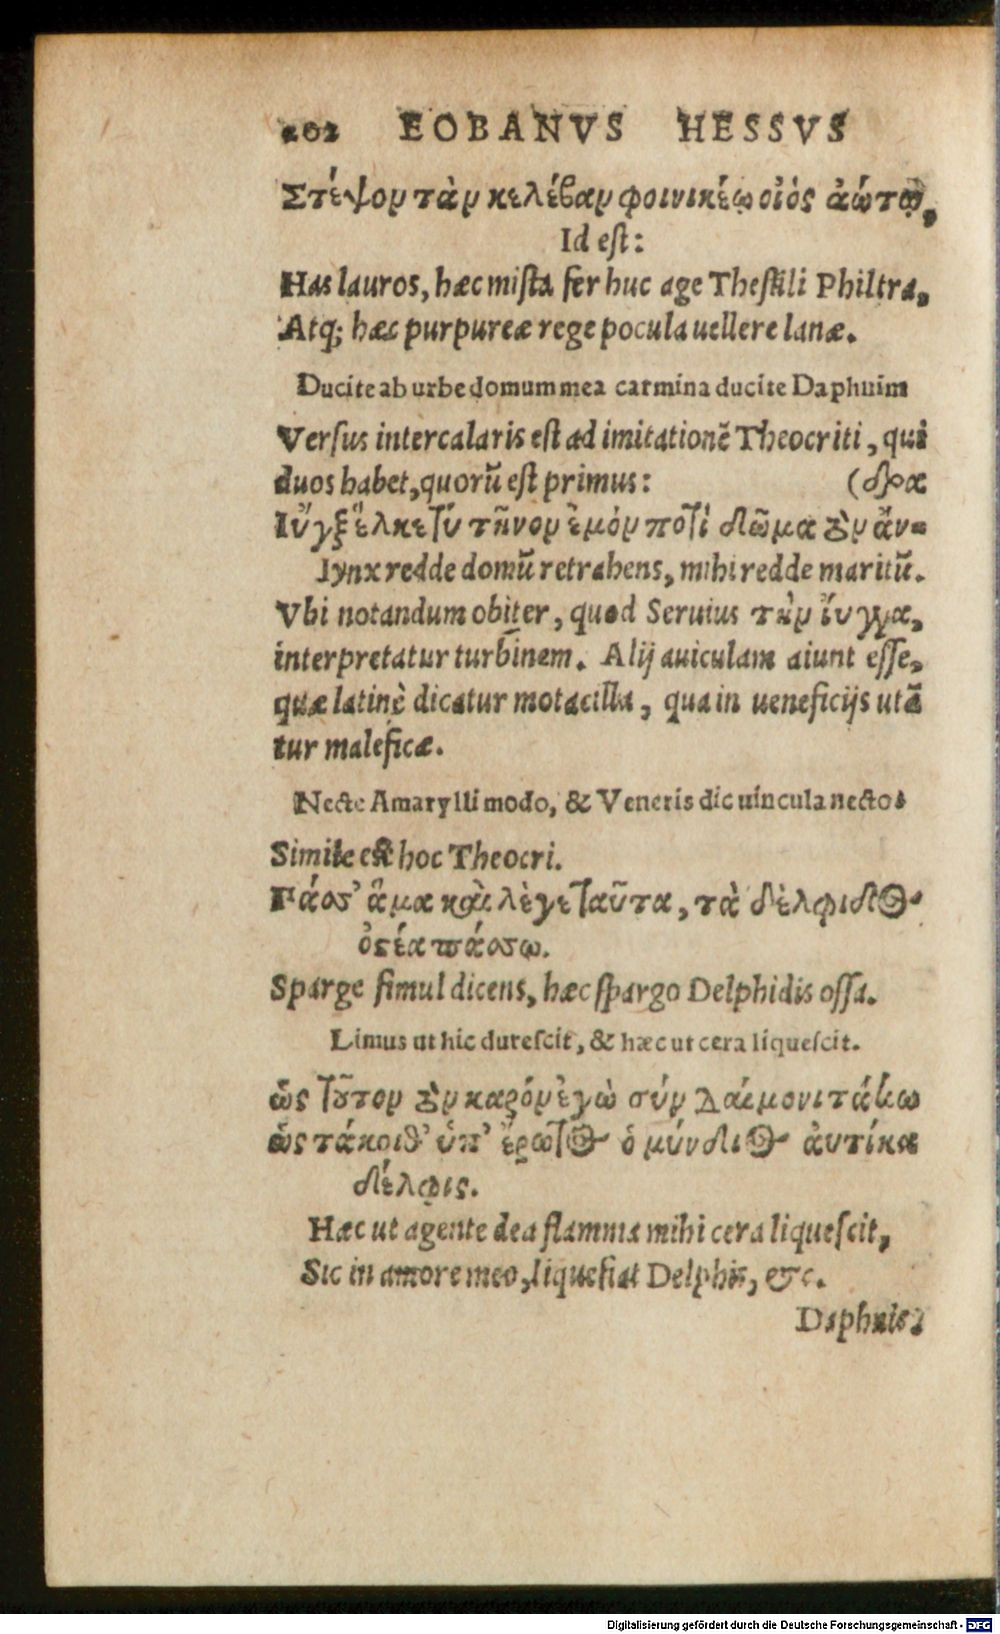 202 EOBANVS HESSVS
Στέψον τὰν κελέβαν φοινικέῳ οἰὸς ἀώτῳ,
Id eſt:
Has lauros, hæc miſta fer huc age Theſtili Philtra,
Atq; hæc purpureæ rege pocula uellere lanæ.
Ducite ab urbe domum mea carmina ducite Daphnim
Verſus intercalaris eſt ad imitationẽ Theocriti, qui
duos habet, quorũ eſt primus: (δρα
Ιὔγξ ἕλκε τὺ τῆνον ἐμὸν ποτὶ δῶμα τὸν ἄν-
Iynx redde domũ retrahens, mihi redde maritũ.
Vbi notandum obiter, quod Seruius τὴν ἴυγγα,
interpretatur turbinem. Alij auiculam aiunt eſſe,
quæ latinè dicatur motacilla, qua in ueneficijs utã
tur maleficæ.
Necte Amarylli modo, & Veneris dic uincula necto:
Simile eſt hoc Theocri.
Πάσσ' ἅμα καὶ λέγε ταῦτα, τὰ δέλφιδος
ὀστέα πάσσω.
Sparge ſimul dicens, hæc ſpargo Delphidis oſſa.
Limus ut hic dureſcit, & hæc ut cera liqueſcit.
ὡς τοῦτον τὸν καρὸν ἐγὼ σὺν Δαίμονι τάκω
ὡς τάκοιθ' ὑπ' ἔρωτος ὁ μύνδιος ἀυτίκα
δέλφις.
Hæc ut agente dea flamma mihi cera liqueſcit,
Sic in amore meo, liquefiat Delphis, &c.
Daphnis,
Digitalisierung gefördert durch die Deutsche Forschungsgemeinschaft - DFG